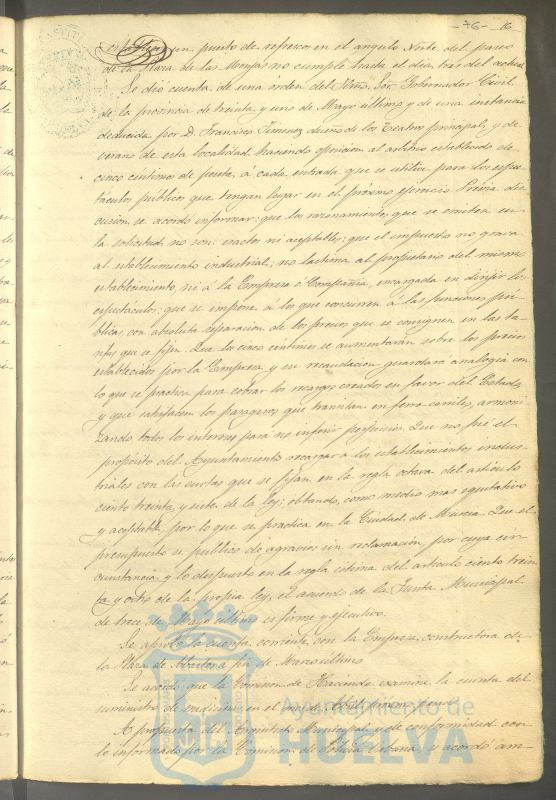 -76- 16
establecer un puesto de refresco en el angulo Norte del paseo
de la Plaza de las Monjas no cumple hasta el dia tres del actual
Se dió cuenta de una orden del Ylmo. Sor. Gobernador Civil
de la provincia de treinta y uno de Mayo último y de una instancia
deducida por D. Francisco Jimenez dueño de los Teatros principal, y de
verano de esta localidad haciendo oposicion al arbitrio establecido de
cinco centimos de peseta, á cada entrada que se utilice para los espec-
táculos públicos que tengan lugar en el próximo ejercicio Prévia dis-
cusion se acordó informar; que los razonamientos que se emiten en
la solicitud no son exactos ni aceptables; que el impuesto no grava
al establecimiento industrial; no lastima al propietario del mismo
establecimiento, ni á la Empresa ó Compañía, encargada en dirijir los
espectáculos; que se impone á los que concurren á las funciones pú-
blicas, con absoluta separacion de los precios que se consignen en las ta-
rifas que se fijen. Que los cinco céntimos se aumentarán sobre los precios
establecidos por la Empresa y su recaudacion guardará analogía con
lo que se practica para cobrar los recargos creados en favor del Estado
y que satisfacen los pasageros que transitan en ferro-carriles, armoni-
zando todos los intereses para no inferir perjuicios. Que no fué el
propósito del Ayuntamiento recargar á los establecimientos indus-
triales con las cuotas que se fijan en la regla octava del artículo
ciento treinta y siete de la ley; optando, como medio mas equitativo
y aceptable, por lo que se practica en la Ciudad de Murcia. Que el
presupuesto se publicó de agravios sin reclamacion, por cuya cir-
cunstancia y lo dispuesto en la regla última del articulo ciento trein-
ta y ocho de la propia ley, el acuerdo de la Junta Municipal
de trece de Mayo último es firme y ejecutivo.
Se aprobó la cuenta corriente con la Empresa constructora de
la Plaza de Abastos á fin de Marzo último.
Se acordó que la Comision de Hacienda examine la cuenta del
suministro de medicinas en el mes de Abril
A propuesta del Arquitecto Municipal y de conformidad con
lo informado por la Comision de Policia Urbana, se acordó am-
Ayuntamiento de
HUELVA